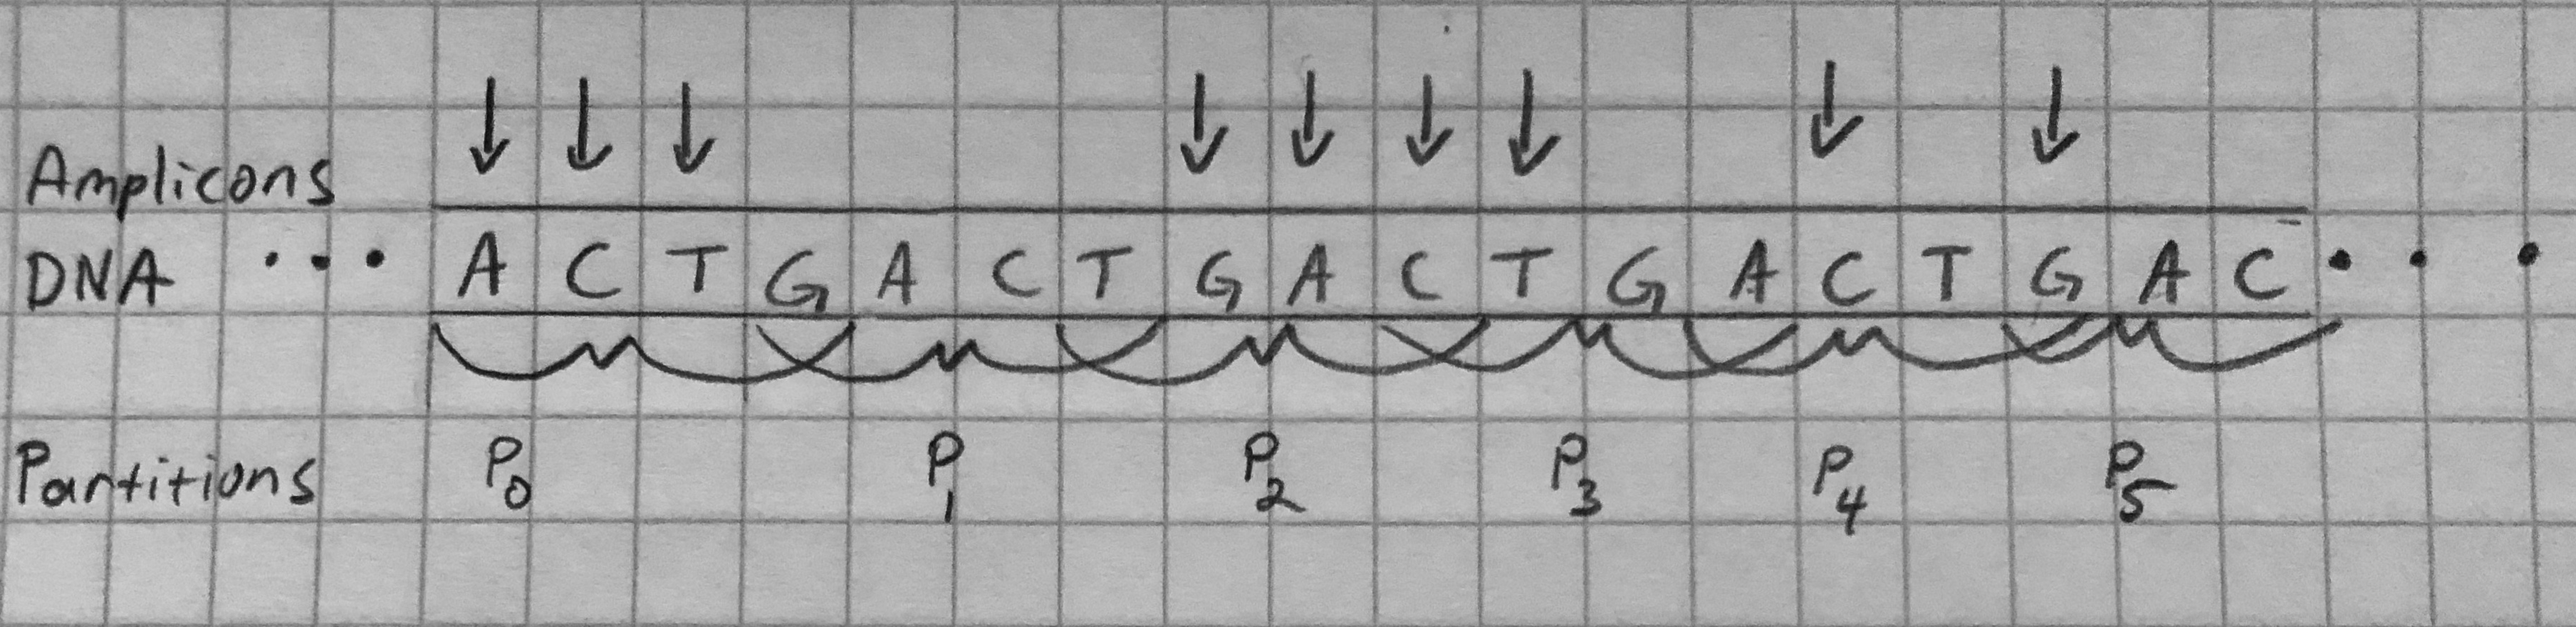 Amplicons ↓ ↓ ↓ ↓ ↓ ↓ ↓ ↓ ↓
DNA • • • A C T G A C T G A C T G A C T G A C • • •
Partitions P0 P1 P2 P3 P4 P5